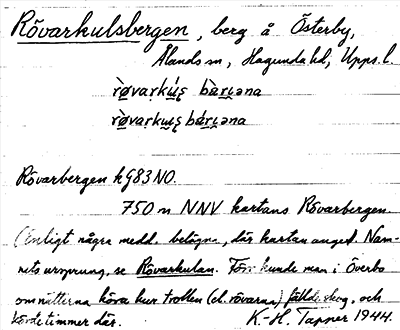 Rövarkulsbergen, berg å Österby,
Ålands sn, Hagunda hd, Upps. l.
Rövarbergen k 983 NO.
750 m NNV kartans Rövarbergen
(Enligt några medd. belägna, där kartan anget. Nam-
nets ursprung, se Rövarkulan. Förr kunde man i Överbo
om nätterna höra hur trollen (el. rövarna) fällde skog, och
körde timmer där. K.-H. Tapner 1944.